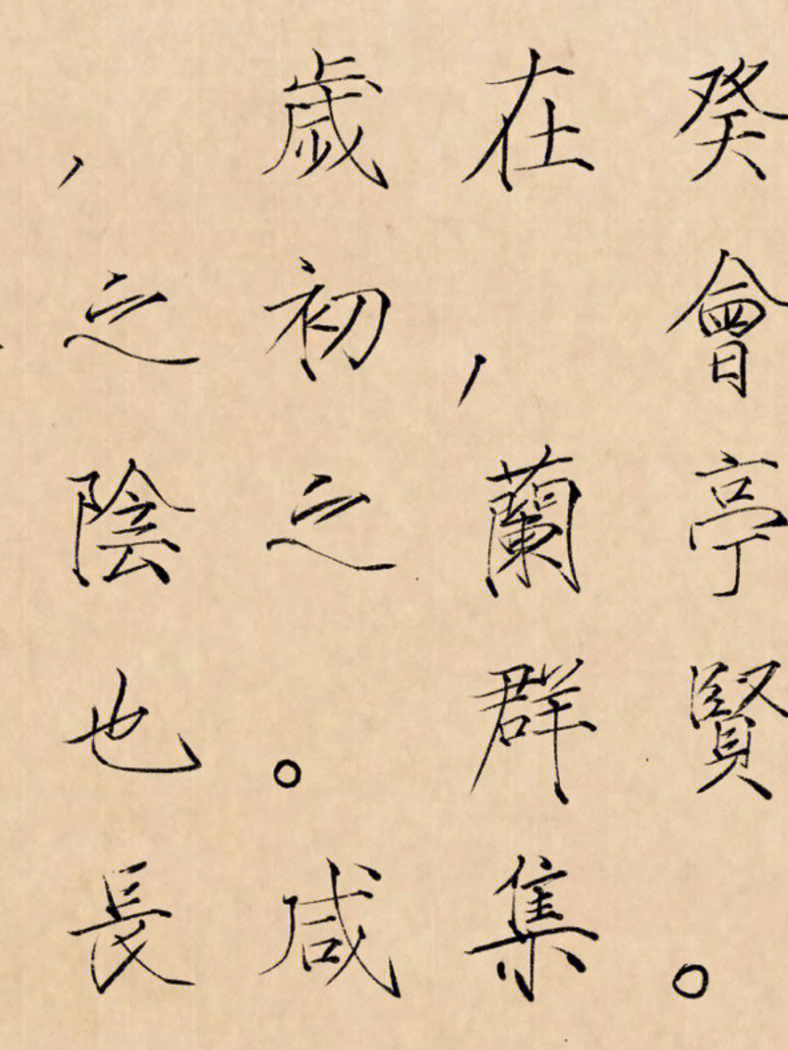 ，歲在癸
之初，會
陰之蘭亭
也。群賢
長咸集。